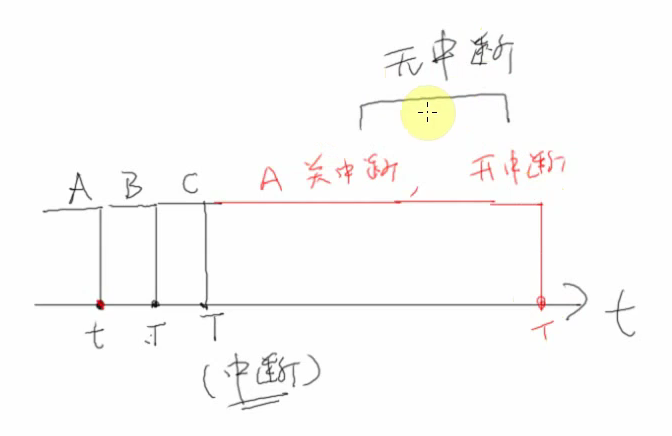 无中断
A B C A 关中断, 开中断
t T T T t
(中断)